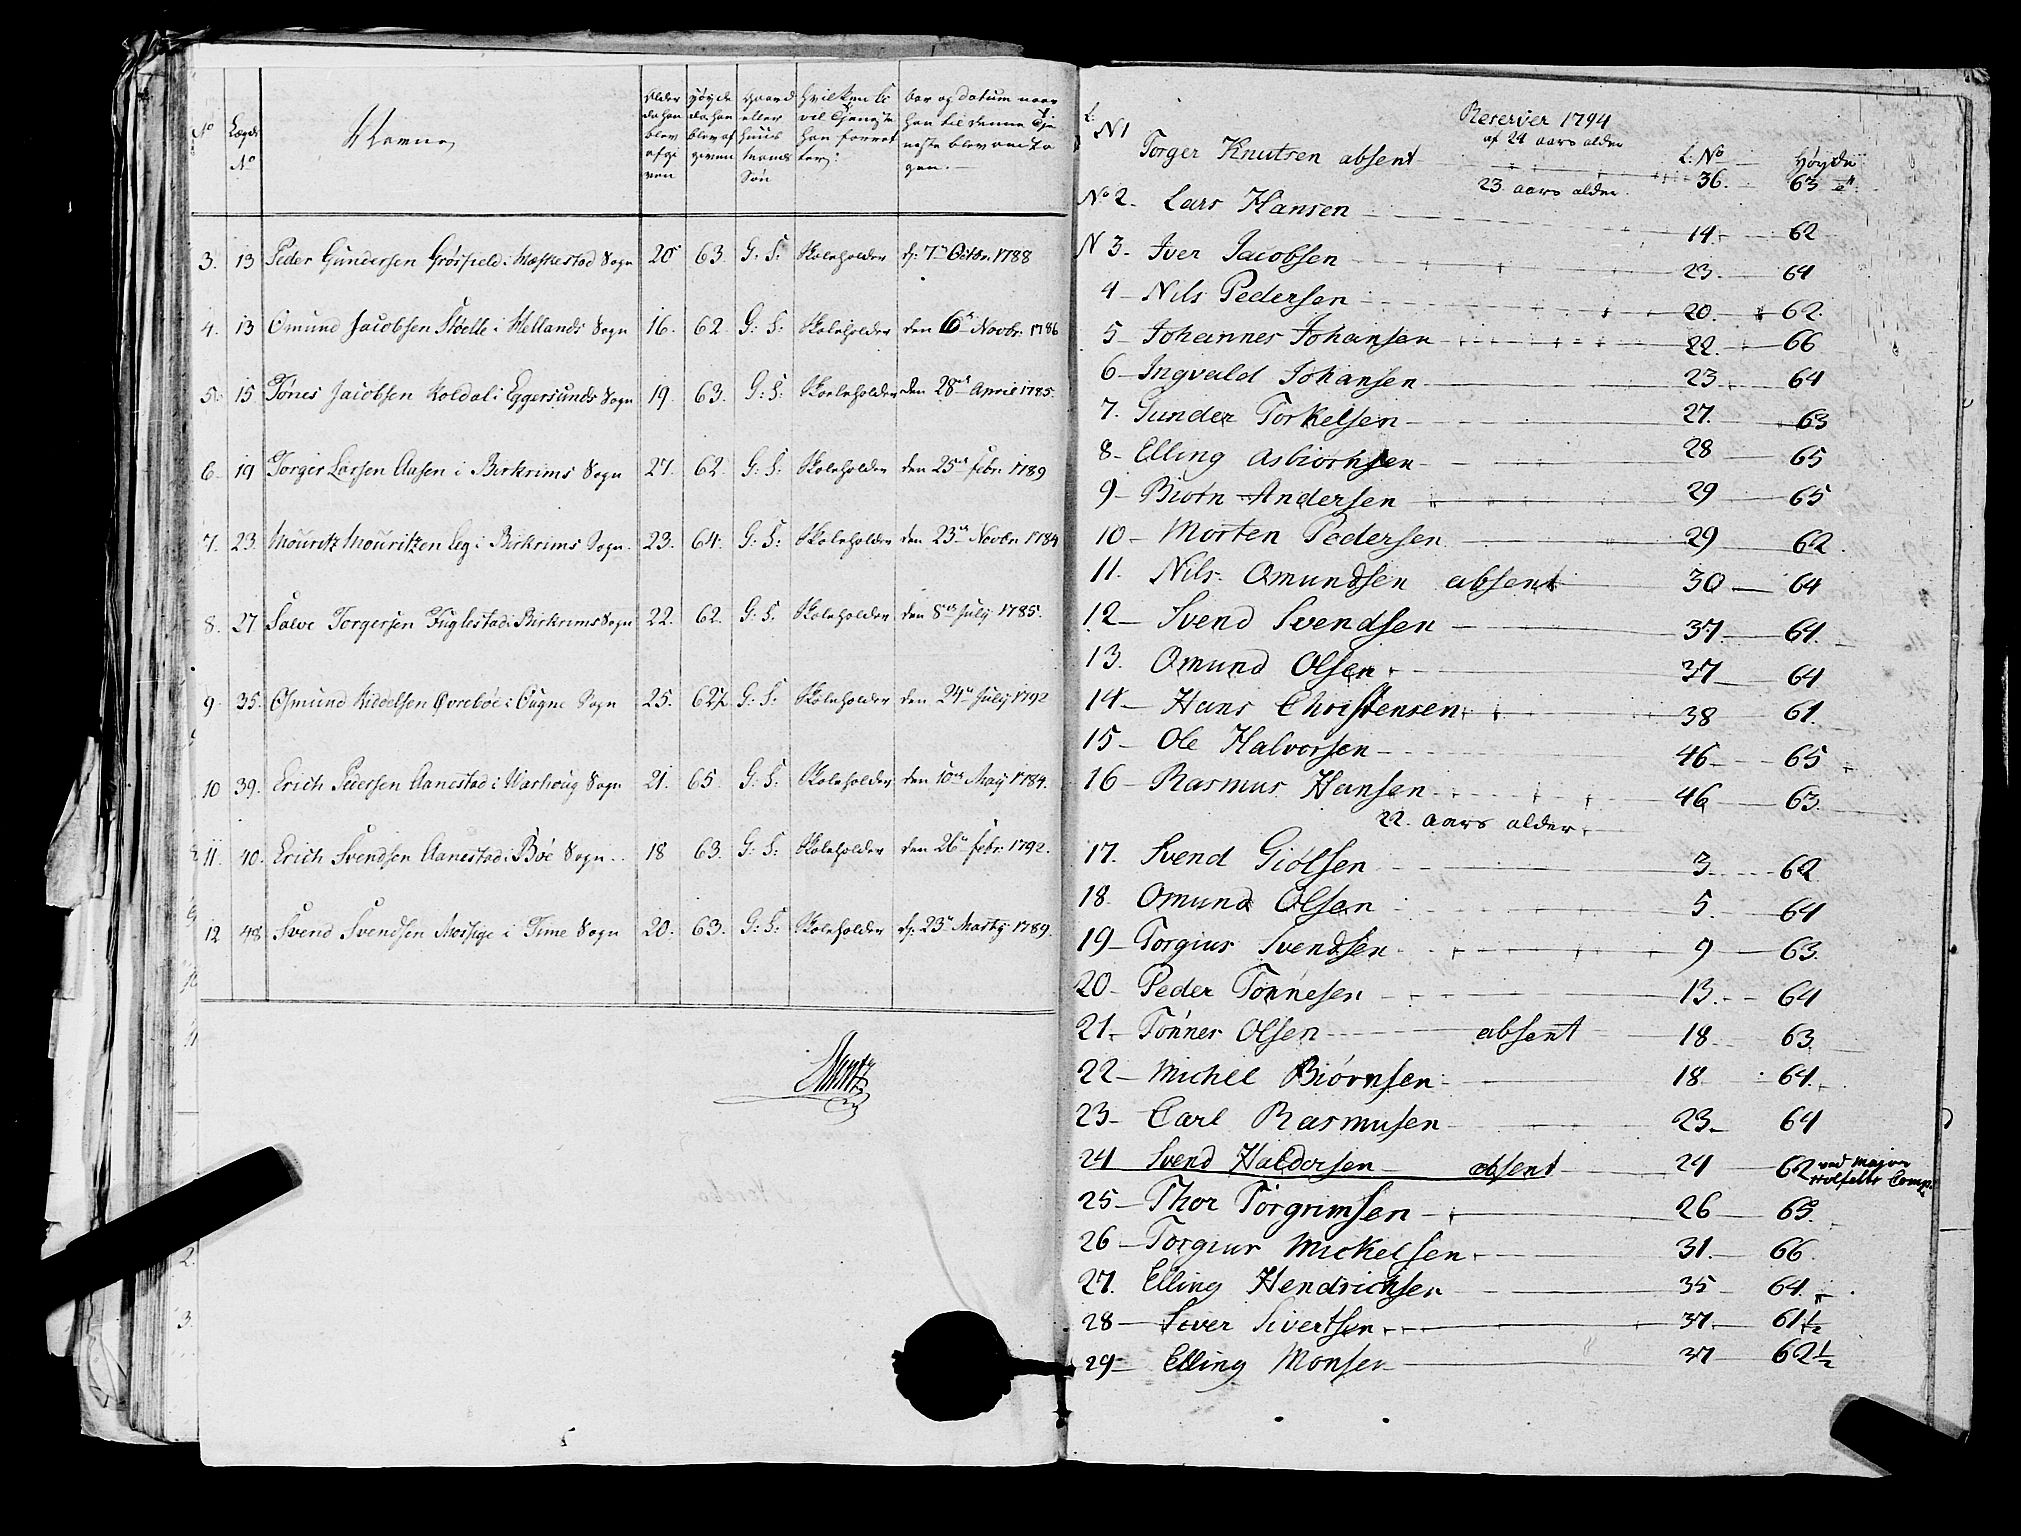 No Lægds No Navne
Alder da han blev afgi ven
Høyde da han blev af given
Gaard eller huus mands Søn
hvilken Ci vil Tjeneste han forret ter
Aar og datum naar han til denne Tje neste blev anta gen.
3. 13 Peder Gundersen Grøsfield i Hæskestad Sogn 20 63. G: S: Skoleholder d: 7de Octbr. 1788
4. 13 Omund Jacobsen Støelle i Hellands Sogn 16. 62 G: S: Skoleholder den 6te Novbr. 1786
5. 15 Tønes Jacobsen Koldal i Eggersunds Sogn 19. 63. G: S: Skoleholder den 28de April 1785.
6. 19 Torger Larsen Aasen i Birkrims Sogn 27. 62. G: S: Skoleholder den 25de Febr. 1789
7. 23. Mouritz Mouritzen Eeg i Birkrims Sogn. 23. 64. G: S: Skoleholder den 23de Novbr. 1784
8. 27 Salve Torgersen Fuglestad i Birkrims Sogn 22. 62. G: S. Skoleholder den 8de July 1785.
9. 35. Osmund Kiddelsen Øvrebøe i Ougne Sogn 25. 62½ G: S: Skoleholder den 24de July 1792
10 39. Erich Pedersen Aanestad i Warhoug Sogn 21. 65. G: S: Skoleholder den 10de May 1784.
11. 40. Erich Svendsen Aanestad i Bøe Sogn 18 63. G: S: Skoleholder den 26de Febr. 1792.
12 48 Svend Svendsen Mossige i Time Sogn 20. 63. G: S: Skoleholder d: 23de Marty 1789.
Reserver 1794
af 24 aars alder
L: No Høyde
N1 Torger Knutsen absent 36. 63
23 aars alder.
No 2. Lars Hansen 14. 62
N 3. Iver Jacobsen 23. 64
4 Nils Pedersen 20. 62.
5 Johannes Johansen 22. 66
6 Ingvald Johansen 23 64
7. Gunder Torkelsen 27. 63
8 Elling Asbiørnsen 28 65
9 Biørn Andersen 29 65
10 Morten Pedersen 29 62
11. Nils Omundsen absent 30 64
12 Svend Svendsen 37 64
13. Omund Olsen 37 64
14 Hans Christensen 38 61
15 Ole Halvorsen 46 65
16 Rasmus Hansen 46 63
22. aars alder
17. Svend Giølsen 3 62
18. Omund Olsen 5. 64
19 Torgius Svendsen 9 63.
20 Peder Tønnesen 13. 64
21. Tønnes Olsen absent 18 63
22 Michel Biørnsen 18 64
23 Carl Rasmusen 23 64
24 Svend Haldorsen absent 24 62 ved Major Comp:
25 Thor Torgrimsen 26 63
26 Torgius Mickelsen 31. 66
27. Elling Hendrichsen 35 64
28 Siver Sivertsen 37. 61½
29 Elling Monsen 37 62½